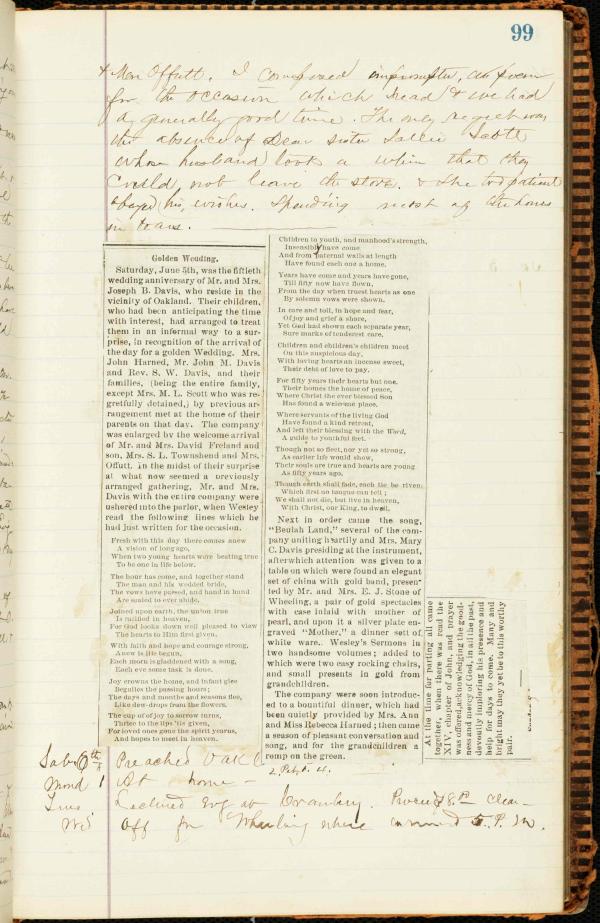 99
& Mrs Offutt. I composed impromptu, a poem
for the occasion which read & we had
a generally good time. The only regret was
the absence of Dear sister Sallie Scott
whose husband took a whim that they
could not leave the store. & she too patient
obeyed his wishes. Spending most of the hours
in tears.
Golden Wedding.
Saturday, June 5th, was the fiftieth
wedding anniversary of Mr. and Mrs.
Joseph B. Davis, who reside in the
vicinity of Oakland. Their children,
who had been anticipating the time
with interest, had arranged to treat
them in an informal way to a sur-
prise, in recognition of the arrival of
the day for a golden Wedding. Mrs.
John Harned, Mr. John M. Davis
and Rev. S. W. Davis, and their
families, (being the entire family,
except Mrs. M. L. Scott who was re-
gretfully detained,) by previous ar-
rangement met at the home of their
parents on that day. The company
was enlarged by the welcome arrival
of Mr. and Mrs. David Freland and
son, Mrs. S. L. Townshend and Mrs.
Offutt. In the midst of their surprise
at what now seemed a previously
arranged gathering, Mr. and Mrs.
Davis with the entire company were
ushered into the parlor, when Wesley
read the following lines which he
had just written for the occasion.
Fresh with this day there comes anew
A vision of long ago,
When two young hearts were beating true
To be one in life below.
The hour has come, and together stand
The man and his wedded bride,
The vows have passed, and hand in hand
Are sealed to ever abide.
Joined upon earth, the union true
Is ratified in heaven,
For God looks down well pleased to view
The hearts to Him first given.
With faith and hope and courage strong,
Anew is life begun,
Each morn is gladdened with a song,
Each eve some task is done.
Joy crowns the home, and infant glee
Beguiles the passing hours;
The days and months and seasons flee,
Like dew-drops from the flowers.
The cup of joy to sorrow turns,
Thrice to the lips 'tis given,
For loved ones gone the spirit yearns,
And hopes to meet in heaven.
Children to youth, and manhood's strength,
Insensibly have come.
And from paternal walls at length
Have found each one a home.
Years have come and years have gone,
Till fifty now have flown,
From the day when truest hearts as one
By solemn vows were shown.
In care and toil, in hope and fear,
Of joy and grief a share,
Yet God had shown each separate year,
Sure marks of tenderest care.
Children and children's children meet
On this auspicious day,
With loving hearts an incense sweet,
Their debt of love to pay.
For fifty years their hearts but one,
Their homes the home of peace,
Where Christ the ever blessed Son
Has found a welcome place.
Where servants of the living God
Have found a kind retreat,
And left their blessing with the Word,
A guide to youthful feet.
Though not so fleet, nor yet so strong,
As earlier life would show,
Their souls are true and hearts are young
As fifty years ago.
Though earth shall fade, each tie be riven
Which first no tongue can tell;
We shall not die, but live in heaven,
With Christ, our King, to dwell.
Next in order came the song,
"Beulah Land," several of the com-
pany uniting heartily and Mrs. Mary
C. Davis presiding at the instrument,
afterwhich attention was given to a
table on which were found an elegant
set of china with gold band, presen-
ted by Mr. and Mrs. E. J. Stone of
Wheeling, a pair of gold spectacles
with case inlaid with mother of
pearl, and upon it a silver plate en-
graved "Mother," a dinner sett of
white ware. Wesley's Sermons in
two handsome volumes; added to
which were two easy rocking chairs,
and small presents in gold from
grandchildren.
The company were soon introduc-
ed to a bountiful dinner, which had
been quietly provided by Mrs. Ann
and Miss Rebecca Harned; then came
a season of pleasant conversation and
song, and for the grandchildren a
romp on the green.
At the time for parting all came
together, when there was read the
XIV, chapter of John, and prayer
was offered, acknowledging the good-
ness and mercy of God, in all the past,
devoutly imploring his presence and
help for days to come. Many and
bright may they yet be to this worthy
pair.
Sab 6th Preached Oakl
Mond 7 At home -
Tues Lectured Evg at Cranberry. Proceed 8. Clear
Wed off for Wheeling where arrived 5 P. M.